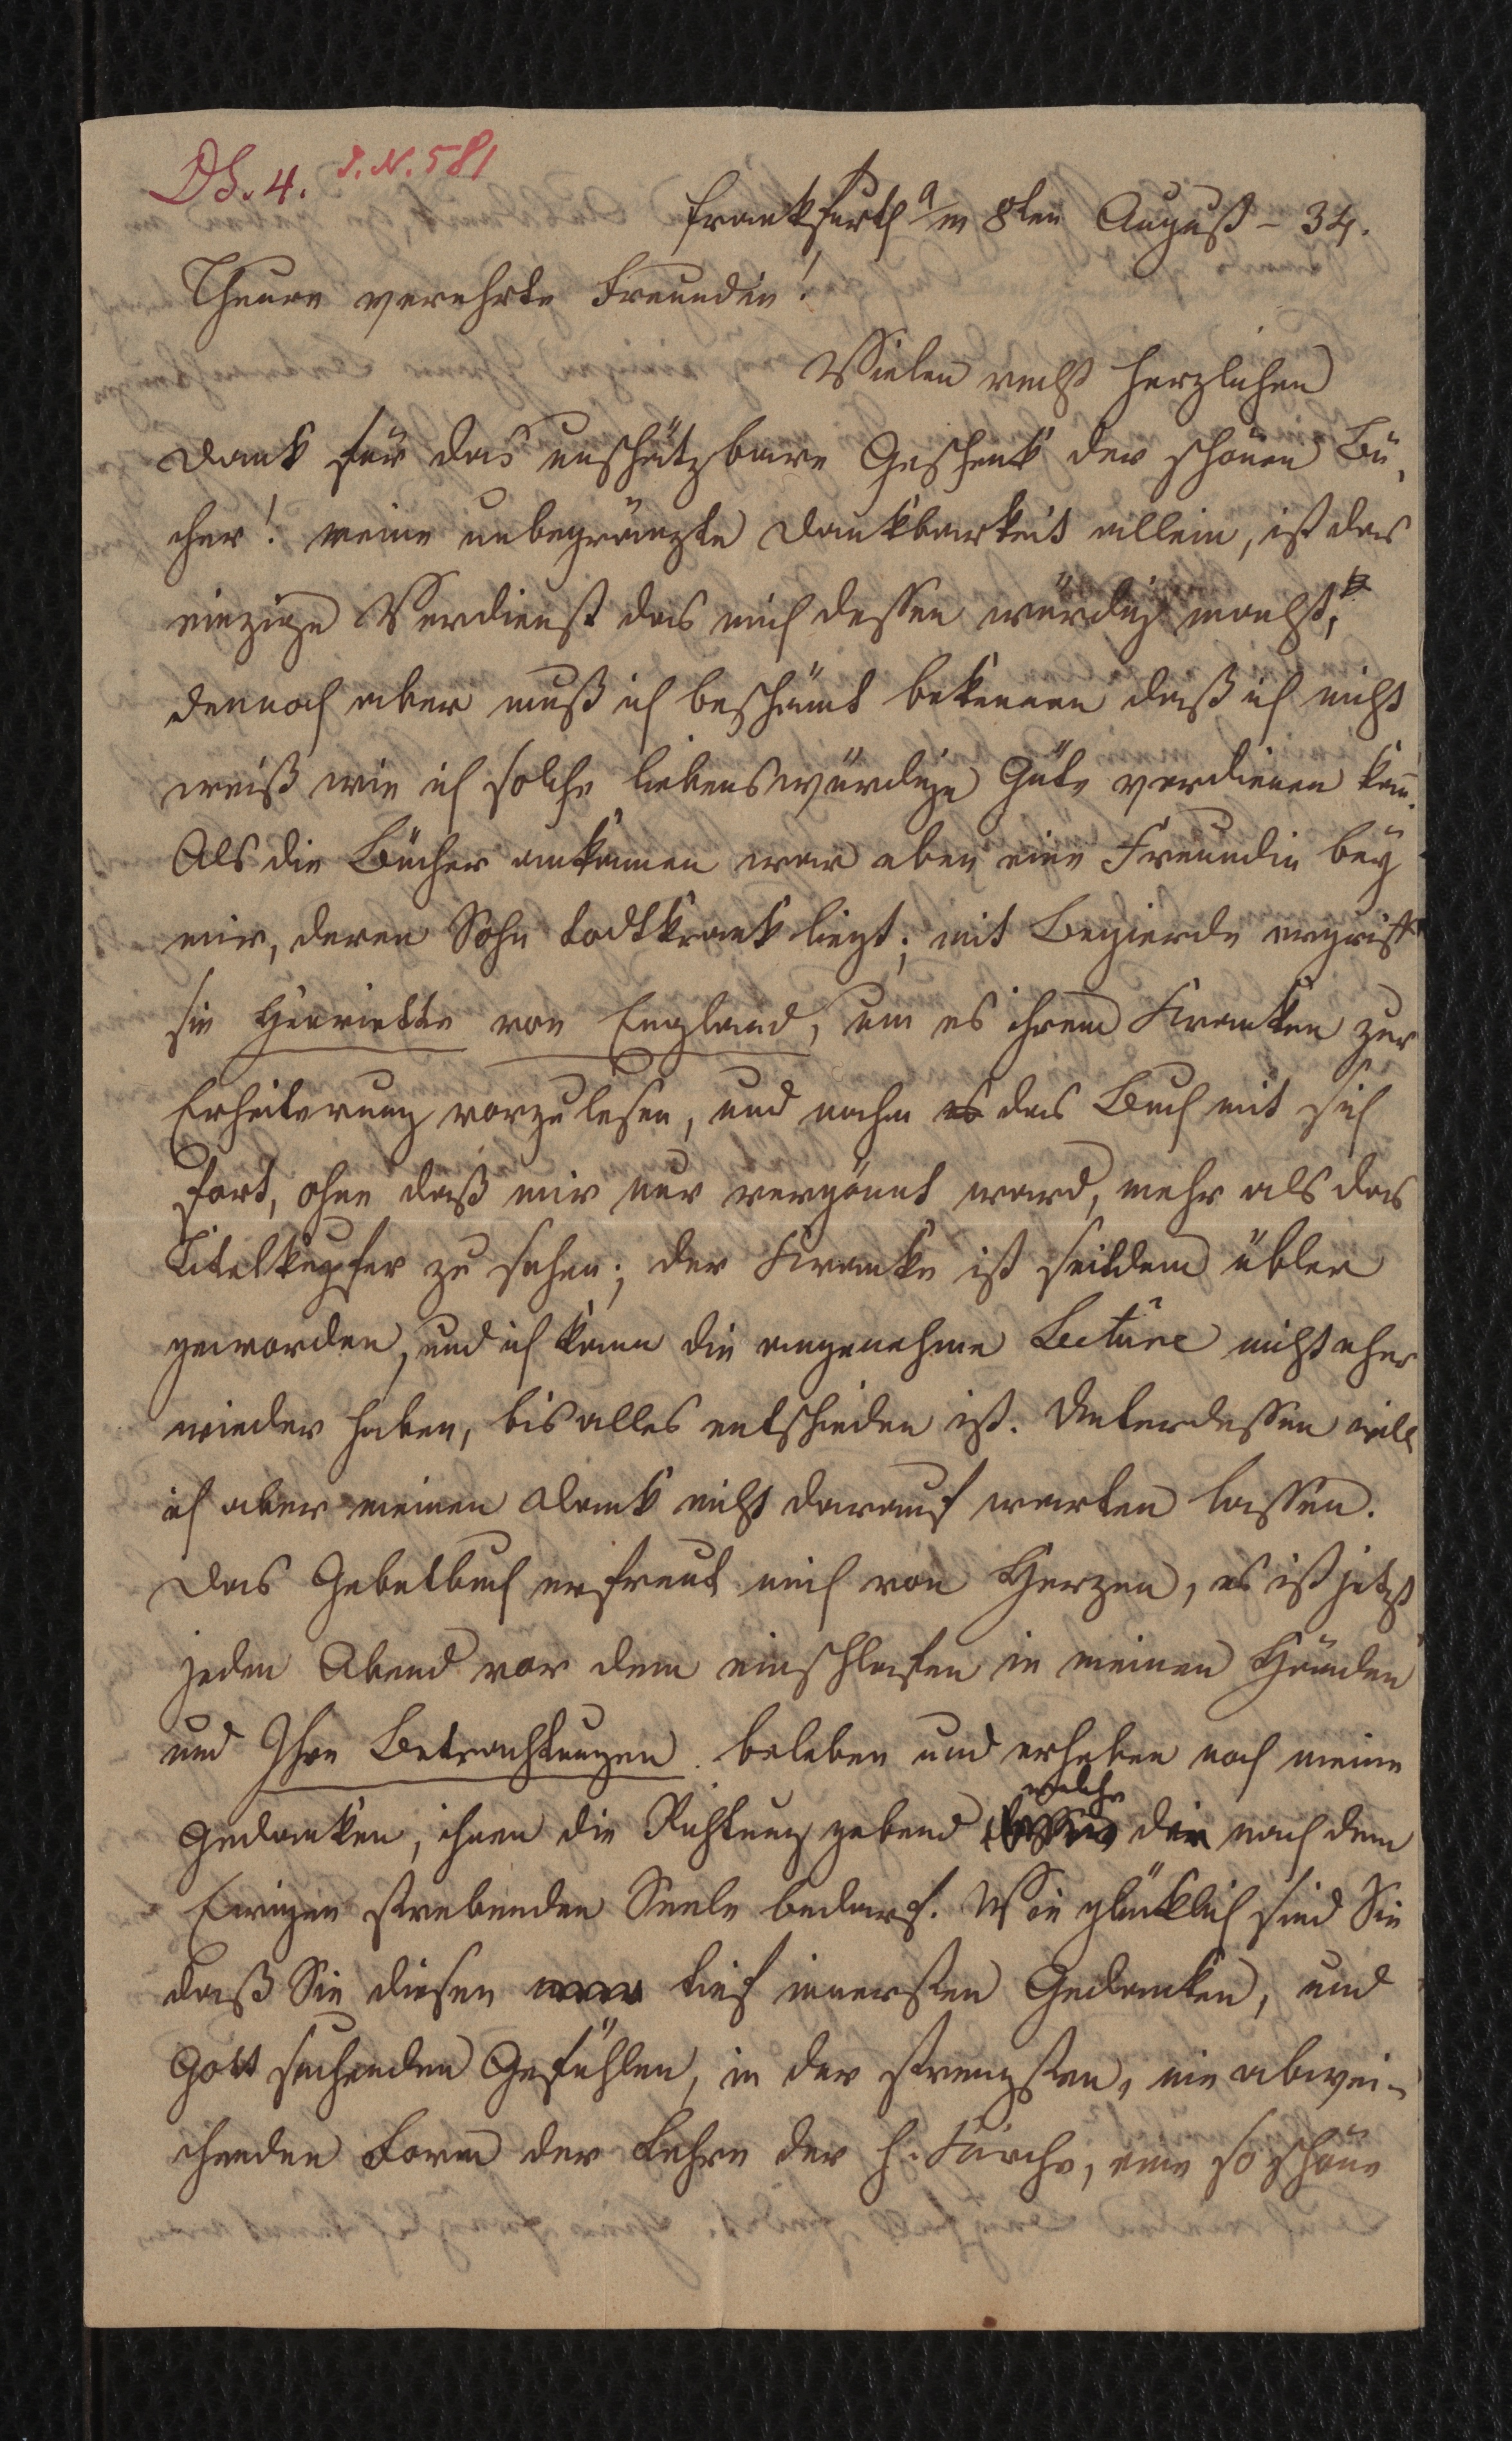 DS. 4. J. N. 581
Frankfurth a/m 8ten August – 34.
Theure verehrte Freundin!
Vielen recht herzlichen
Dank für das unschätzbare Geschenk der schönen Bü-
cher! meine unbegränzte Dankbarkeit allein, ist das
einzige Verdienst das mich dessen würdig macht,
dennoch aber muß ich beschämt bekennen daß ich nicht
weiß wie ich solche liebenswürdige Güte verdienen kann.
Als die Bücher ankamen war eben eine Freundin bey
mir, deren Sohn todtkrank liegt; mit Begierde ergriff
sie Henriette von England, um es ihrem Kranken zur
Erheiterung vorzulesen, und nahm es das Buch mit sich
fort, ohne daß mir nur vergönnt ward, mehr als das
Titelkupfer zu sehen; der Kranke ist seitdem übler
geworden, und ich kann die angenehme Lecture nicht eher
wieder haben, bis alles entschieden ist. Unterdessen will
ich aber meinen Dank nicht darauf warten lassen.
Das Gebetbuch erfreut mich von Herzen, es ist jetzt
jeden Abend vor dem einschlafen in meinen Händen
und Ihre Betrachtungen beleben und erheben noch meine
Gedanken, ihnen die Richtung gebend welche die nach dem
Ewigen strebenden Seele bedarf. Wie glücklich sind Sie
daß Sie diesen tief innersten Gedanken, und
Gott suchenden Gefühlen, in der strengsten, nie abwei-
chenden Form der Lehre der h. Kirche, eine so schöne